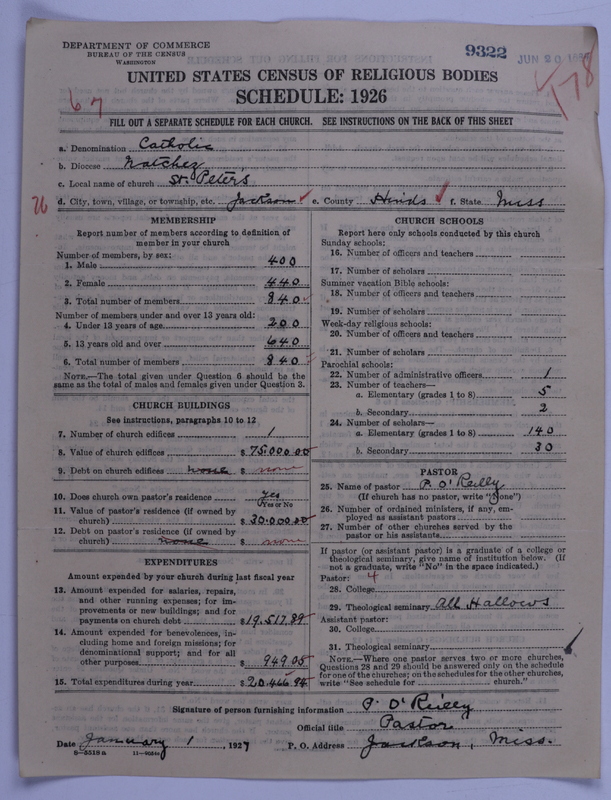 DEPARTMENT OF COMMERCE
BUREAU OF THE CENSUS
WASHINGTON
9322
JUN 20
178
UNITED STATES CENSUS OF RELIGIOUS BODIES
SCHEDULE: 1926
67
FILL OUT A SEPARATE SCHEDULE FOR EACH CHURCH. SEE INSTRUCTIONS ON THE BACK OF THIS SHEET
a. Denomination Catholic
b. Diocese Natchez
c. Local name of church St. Peters
d. City, town, village, or township, etc. Jackson e. County Hinds f. State Miss
MEMBERSHIP
Report number of members according to definition of
member in your church
Number of members, by sex:
1. Male 400
2. Female 440
3. Total number of members 840
Number of members under and over 13 years old:
4. Under 13 years of age 200
5. 13 years old and over 640
6. Total number of members 840
NOTE.—The total given under Question 6 should be the
same as the total of males and females given under Question 3.
CHURCH BUILDINGS
See instructions, paragraphs 10 to 12
7. Number of church edifices 1
8. Value of church edifices $ 75.000.00
9. Debt on church edifices none $ none
10. Does church own pastor's residence yes
Yes or No
11. Value of pastor's residence (if owned by
church) $ 30.000.00
12. Debt on pastor's residence (if owned by
church) none $ none
EXPENDITURES
Amount expended by your church during last fiscal year
13. Amount expended for salaries, repairs,
and other running expenses; for im-
provements or new buildings; and for
payments on church debt $ 19.517.89
14. Amount expended for benevolences, in-
cluding home and foreign missions; for
denominational support; and for all
other purposes $ 949.05
15. Total expenditures during year $ 20.466.94
CHURCH SCHOOLS
Report here only schools conducted by this church
Sunday schools:
16. Number of officers and teachers
17. Number of scholars
Summer vacation Bible schools:
18. Number of officers and teachers
19. Number of scholars
Week-day religious schools:
20. Number of officers and teachers
21. Number of scholars
Parochial schools:
22. Number of administrative officers 1
23. Number of teachers—
a. Elementary (grades 1 to 8) 5
b. Secondary 2
24. Number of scholars—
a. Elementary (grades 1 to 8) 140
b. Secondary 30
PASTOR
25. Name of pastor P. O'Reilly
(If church has no pastor, write "None")
26. Number of ordained ministers, if any, em-
ployed as assistant pastors
27. Number of other churches served by the
pastor or his assistants
If pastor (or assistant pastor) is a graduate of a college or
theological seminary, give name of institution below. (If
not a graduate, write "No" in the space indicated.)
Pastor: 4
28. College
29. Theological seminary All Hallows
Assistant pastor:
30. College
31. Theological seminary
NOTE.—Where one pastor serves two or more churches,
Questions 28 and 29 should be answered only on the schedule
for one of the churches; on the schedules for the other churches,
write "See schedule for church."
Signature of person furnishing information P. O'Reilly
Official title Pastor
Date January 1, 1927 P. O. Address Jackson, Miss.
8—5518a